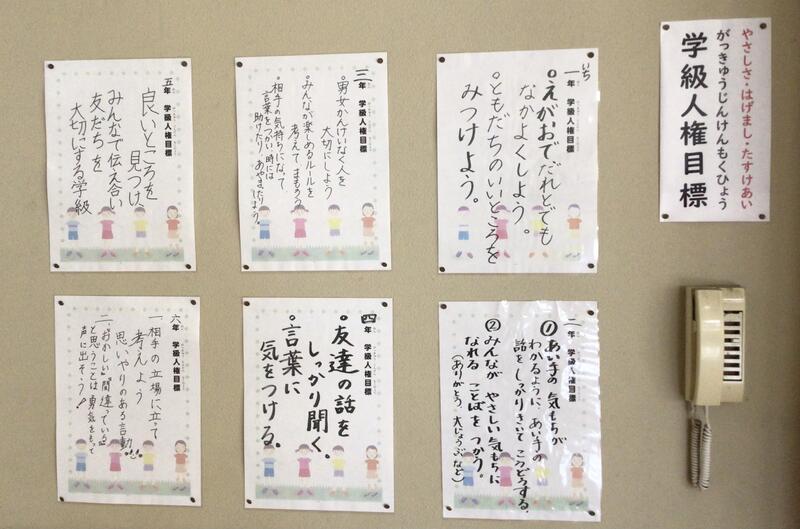 やさしさ・はげまし・たすけあい
がっきゅうじんけんもくひょう
学級人権目標
一年 学級人権目標
いち
。えがおでだれとでも
なかよくしよう。
。ともだちのいいところを
みつけよう。
二年 学級人権目標
①あい手の気もちが
わかるように、あい手の
話をしっかりきいてこうどうする。
②みんながやさしい気もちに
なれることばをつかう。
(ありがとう、大じょうぶなど)
三年 学級人権目標
。男女かんけいなく人を
大切にしよう
。みんなが楽しめるルールを
考えてまもろう
。相手の気持ちになって
言葉をつかい、時には
助けたり、あやまたりしよう。
四年 学級人権目標
。友達の話を
しっかり聞く。
。言葉に
気をつける。
五年 学級人権目標
良いところを
見つけ
みんなで伝え合い
友だちを
大切にする学級
六年 学級人権目標
一、相手の立場に立って
考えよう
思いやりのある言動
二、おかしい、間違っている
と思うことは勇気をもって
声に出そう!